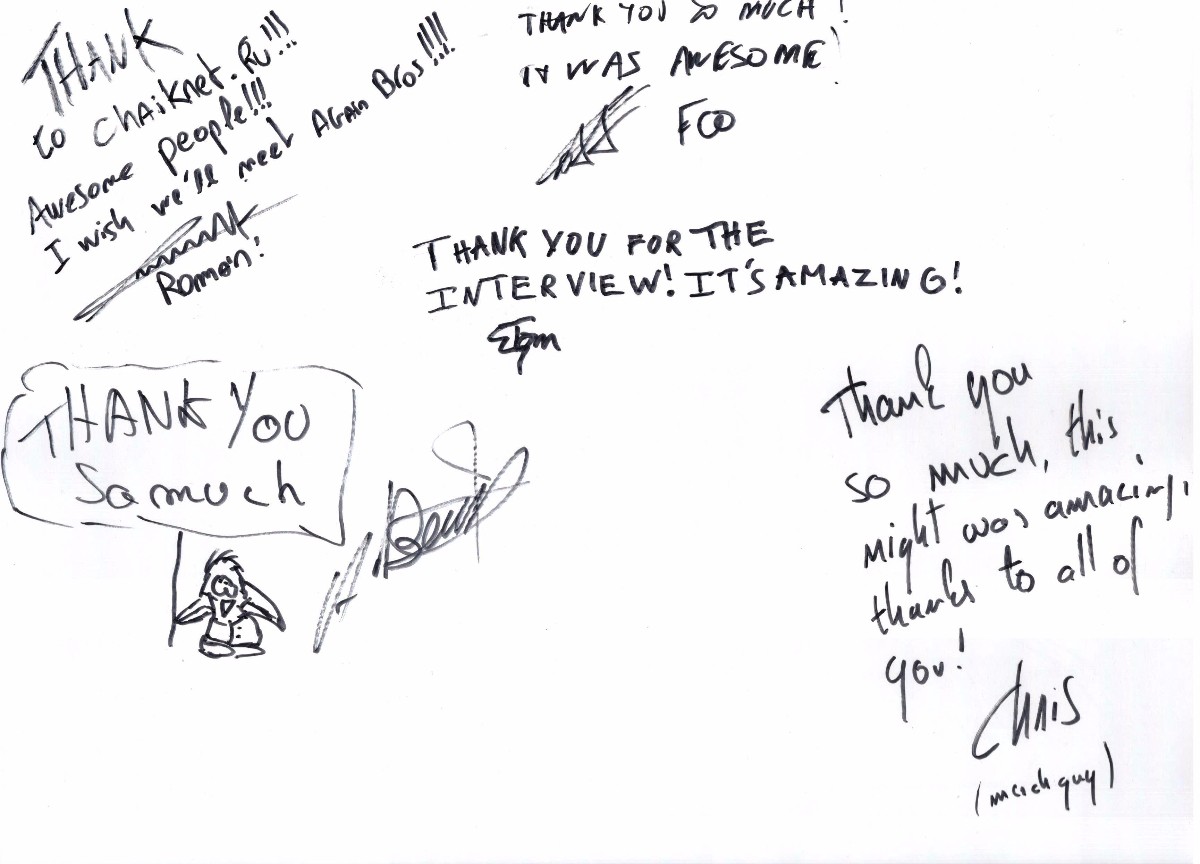 THANK
to chaiknet.RU!!!
Awesome people!!!
I wish we'll meet Again Bros!!!!
Roman!
THANK YOU SO MUCH!
IT WAS AWESOME!
FCO
THANK YOU FOR THE
INTERVIEW! IT'S AMAZING!
THANK YOU
So much
Thank you
so much, this
night was amazing,
thanks to all of
you!
Chris
(merch guy)